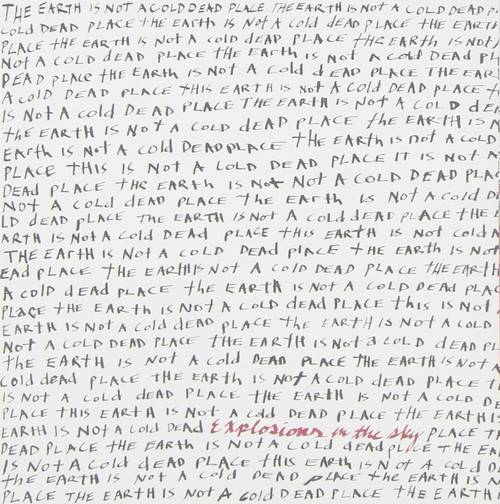 THE EARTH IS NOT A COLD DEAD PLACE THE EARTH IS NOT A COLD DEAD P
COLD DEAD PLACE THE EARTH IS NOT A COLD DEAD PLACE THE EARTH
PLACE THE EARTH IS NOT A COLD DEAD PLACE THE EARTH IS NOT
NOT A COLD DEAD PLACE THE EARTH IS NOT A COLD DEAD PL
DEAD PLACE THE EARTH IS NOT A COLD dEAD PLACE THE EAR
A COLD DEAD PLACE THIS EARTH IS NOT A COLD DEAD PLACE
IS NOT A COLD DEAD PLACE THE EARTH IS NOT A COLD dE
the EARTH IS NOT A COLD dEAD PLACE the EARTH IS N
EARth IS NOT A COLD DEAD PLACE tHE EARTH IS NOT A COLD
PLACE THIS IS NOT A COLD DEAD PLACE IT IS NOT A
DEAD PLACE THE EARTH IS NOT NOT A COLD DEAD PLACE
NOT A COLD DEAD PLACE THE EARTH IS NOT A COLD D
LD DEAD PLACE THE EARTH IS NOT A COLD dEAD PLACE THE
ARTH IS NOT A COLD DEAD PLACE THIS EARTH IS NOT COLD A
THE EARTH IS NOT A COLD DEAD PLACE THE EARTH IS NOT
EAD PLACE THE EARTH IS NOT A COLD DEAD PLACE THE EARTH
A COLD dEAD PLACE tHE EARTH IS NOT A COLD DEAD PLAC
PLACE THE EARTH IS NOT A COLD dEAD PLACE this IS NOT
EARTH IS NOT A COLD DEAD PLACE THE EARTH IS NOT A COLD
NOT A COLD DEAD PLACE THE EARTH IS NOT A COLD dEAD PL
the EARTH IS NOT A COLD DEAD PLACE THE EARTH IS NOT A
COLD dead PLACE THE EARTH IS NOT A COLD DEAD PLACE T
IS NOT A COLD DEAD PLACE tHE EARTH IS NOT A COLD DE
PLACE THIS EARTH IS NOT A COLD DEAD PLACE THE EARTH IS
EARTH IS NOT A COLD DEAD Explosions in the sky PLACE T
DEAD PLACE THE EARTH IS NOT A COLD dEAD PLACE THE EA
IS NOT A COLD dEAD PLACE THIS EARTH IS NOT A COLD D
the EARTH IS NOT A COLD DEAD PLACE THE EARTH IS NOT A COLD
PLACE THE EARTH IS NOT A COLD DEAD PLACE THE EARTH IS N